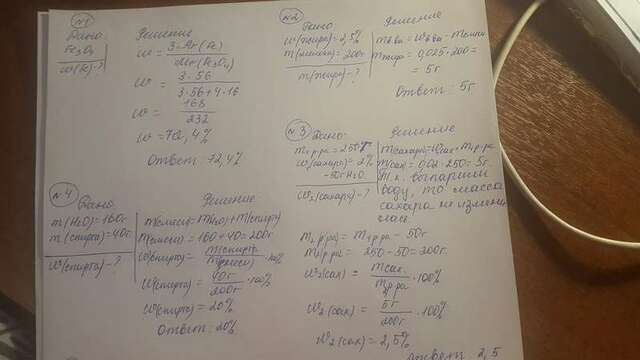 №1
Дано:
Fe₃O₄
w(Fe)-?
Решение
w = 3·Ar(Fe)
Mr(Fe₃O₄)
w = 3·56
3·56+4·16
w = 168
232
w = 72,4%
Ответ: 72,4%
№2
Дано:
w(жира)=2,5%
m(молока)=200г
m(жира)-?
Решение
= 0,025·200=
= 5г
Ответ: 5г
№3
Дано:
m₁р.ра=250г
w₁(сахара)=2%
-50г H₂O
w₂(сахара)-?
Решение
mсах=0,02·250=5г.
Т.к. выпарили
воду, то масса
сахара не измени
лась.
m₂р.ра = m₁р.ра - 50г
m₂р.ра = 250-50=200г.
w₂(сах) = mсах. ·100%
m₂р.ра
w₂(сах) = 5г ·100%
200г
w₂(сах)=2,5%
Ответ 2,5
№4
Дано:
m(H₂O)=160г
m(спирта)=40г
w(спирта)-?
Решение
mсмеси=m(H₂O)+m(спирта)
m(смеси)=160+40=200г
w(спирта)= m(спирта) ·100%
m(смеси)
w(спирта)= 40г ·100%
200г
w(спирта)=20%
Ответ: 20%